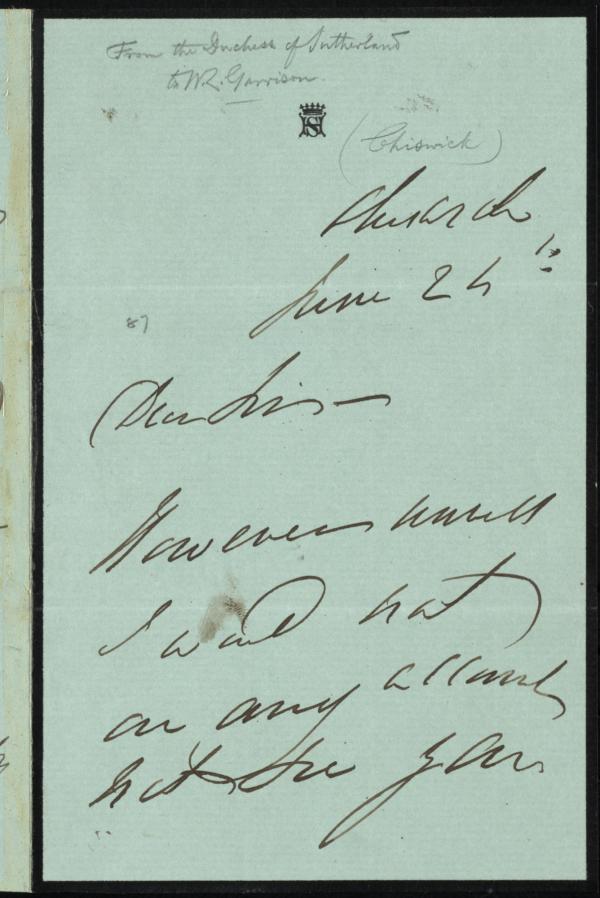 From the Duchess of Sutherland
to W. L. Garrison.
(Chiswick)
Chiswick
June 24th
87
Dear Sir —
However unwell
I would not
on any account
not see you